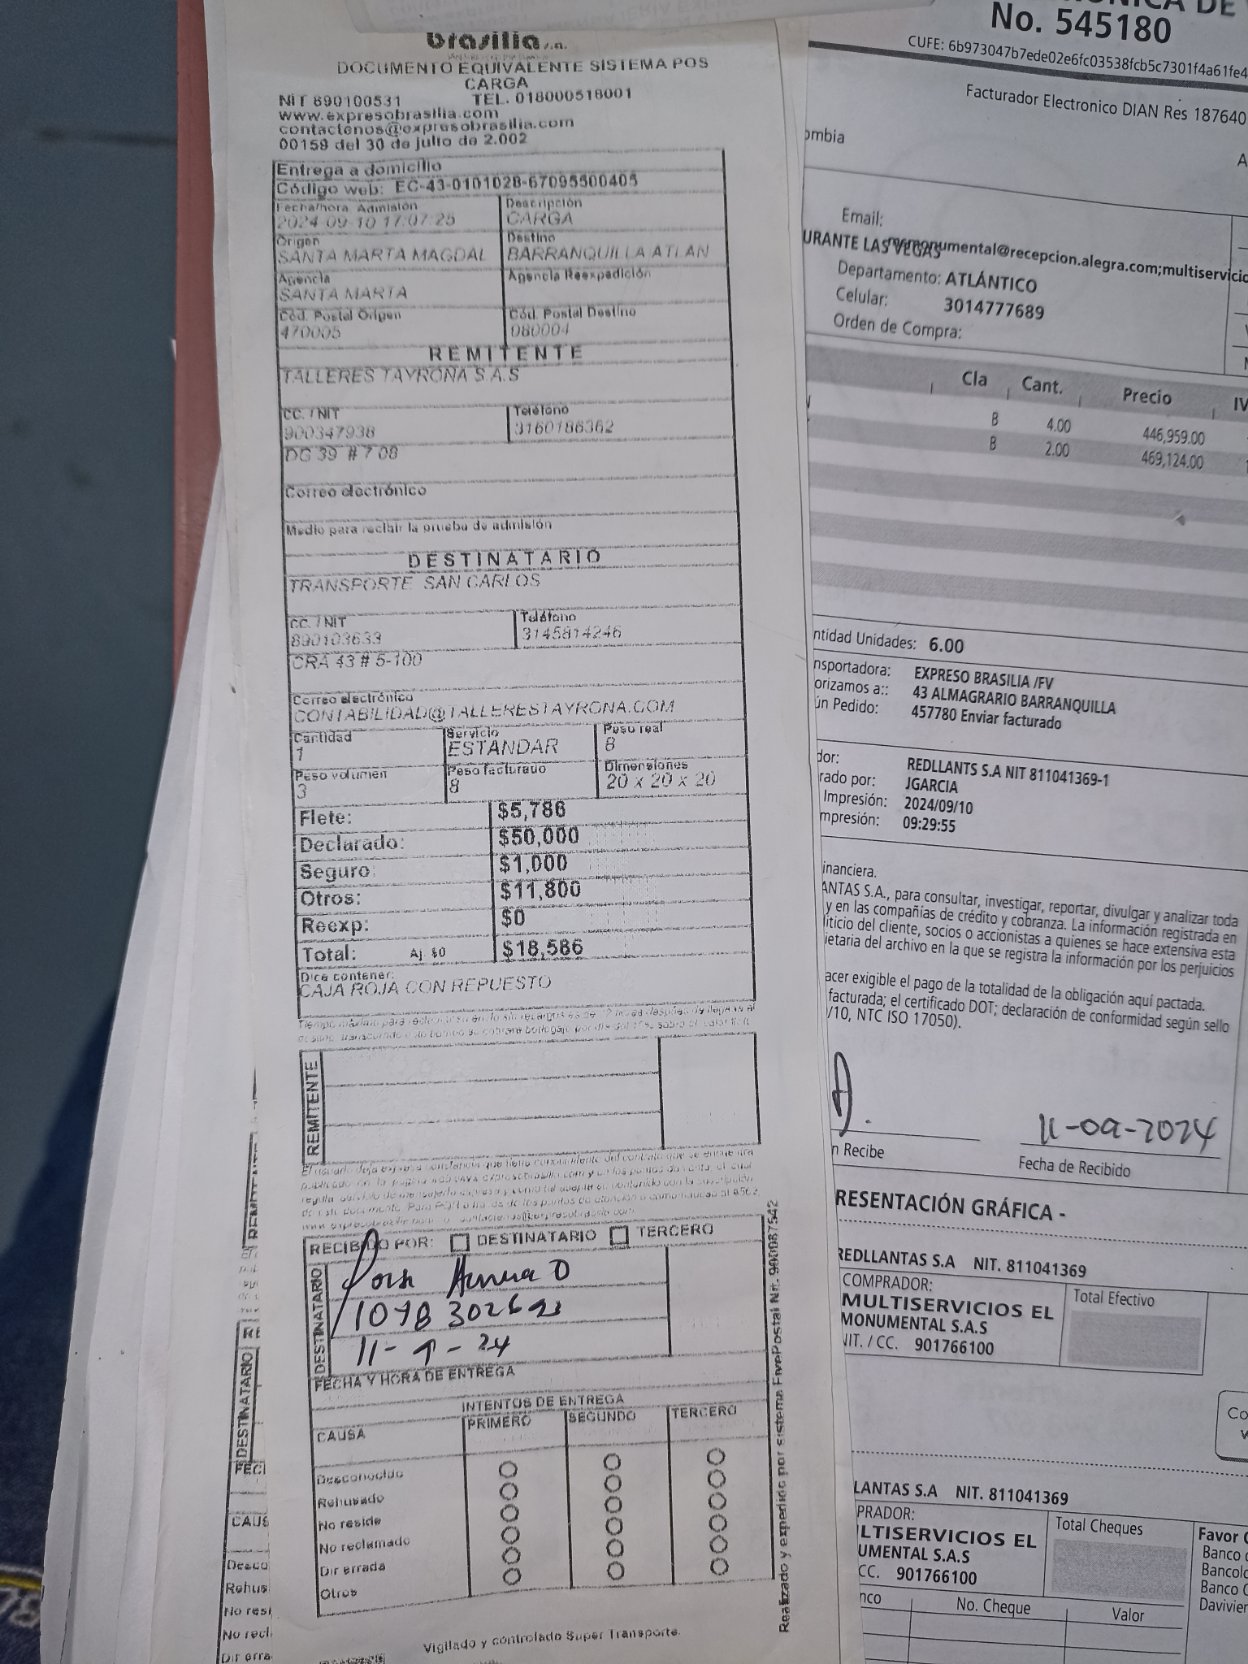 brasilia s.a.
DOCUMENTO EQUIVALENTE SISTEMA POS
CARGA
NIT 890100531 TEL. 018000518001
www.expresobrasilia.com
contactenos@expresobrasilia.com
00159 del 30 de julio de 2.002
Entrega a domicilio
Código web: EC-43-0101028-67095500405
Fecha/hora Admisión Descripción
2024-09-10 17:07:25 CARGA
Origen Destino
SANTA MARTA MAGDAL BARRANQUILLA ATLAN
Agencia Agencia Reexpedición
SANTA MARTA
Cód. Postal Origen Cód. Postal Destino
470005 080004
REMITENTE
TALLERES TAYRONA S.A.S
CC. / NIT Teléfono
900347938 3160186362
DG 39 # 7 08
Correo electrónico
Medio para recibir la prueba de admisión
DESTINATARIO
TRANSPORTE SAN CARLOS
CC. / NIT Teléfono
890103633 3145814246
CRA 43 # 5-100
Correo electrónico
CONTABILIDAD@TALLERESTAYRONA.COM
Cantidad Servicio Peso real
1 ESTANDAR 8
Peso volumen Peso facturado Dimensiones
3 8 20 x 20 x 20
Flete: $5,786
Declarado: $50,000
Seguro: $1,000
Otros: $11,800
Reexp: $0
Total: Aj. $0 $18,586
Dice contener:
CAJA ROJA CON REPUESTO
REMITENTE
RECIBIDO POR: DESTINATARIO TERCERO
DESTINATARIO
11-9-24
FECHA Y HORA DE ENTREGA
INTENTOS DE ENTREGA
CAUSA PRIMERO SEGUNDO TERCERO
Desconocido
Rehusado
No reside
No reclamado
Dir errada
Otros
Vigilado y controlado Super Transporte.
Realizado y expedido por sistema FivePostal Nit. 900087542
No. 545180
CUFE: 6b973047b7ede02e6fc03538fcb5c7301f4a61fe4
Facturador Electronico DIAN Res 187640
ombia
Email:
URANTE LAS VEGAS
monumental@recepcion.alegra.com;multiservicio
Departamento: ATLÁNTICO
Celular: 3014777689
Orden de Compra:
Cla Cant. Precio IV
B 4.00 446,959.00
B 2.00 469,124.00
ntidad Unidades: 6.00
nsportadora: EXPRESO BRASILIA /FV
orizamos a:: 43 ALMAGRARIO BARRANQUILLA
ún Pedido: 457780 Enviar facturado
dor: REDLLANTS S.A NIT 811041369-1
rado por: JGARCIA
Impresión: 2024/09/10
mpresión: 09:29:55
inanciera.
ANTAS S.A., para consultar, investigar, reportar, divulgar y analizar toda
y en las compañias de crédito y cobranza. La información registrada en
liticio del cliente, socios o accionistas a quienes se hace extensiva esta
ietaria del archivo en la que se registra la información por los perjuicios
acer exigible el pago de la totalidad de la obligación aquí pactada.
facturada; el certificado DOT; declaración de conformidad según sello
/10, NTC ISO 17050).
11-09-2024
n Recibe Fecha de Recibido
RESENTACIÓN GRÁFICA -
REDLLANTAS S.A NIT. 811041369
COMPRADOR: Total Efectivo
MULTISERVICIOS EL
MONUMENTAL S.A.S
NIT. / CC. 901766100
LLANTAS S.A NIT. 811041369
PRADOR: Total Cheques Favor
LTISERVICIOS EL Banco
UMENTAL S.A.S Bancolo
CC. 901766100 Banco
Davivien
nco No. Cheque Valor
DESTINATARIO
FECI
CAUS
Desco
Rehus
No resi
No recl
Dir erra